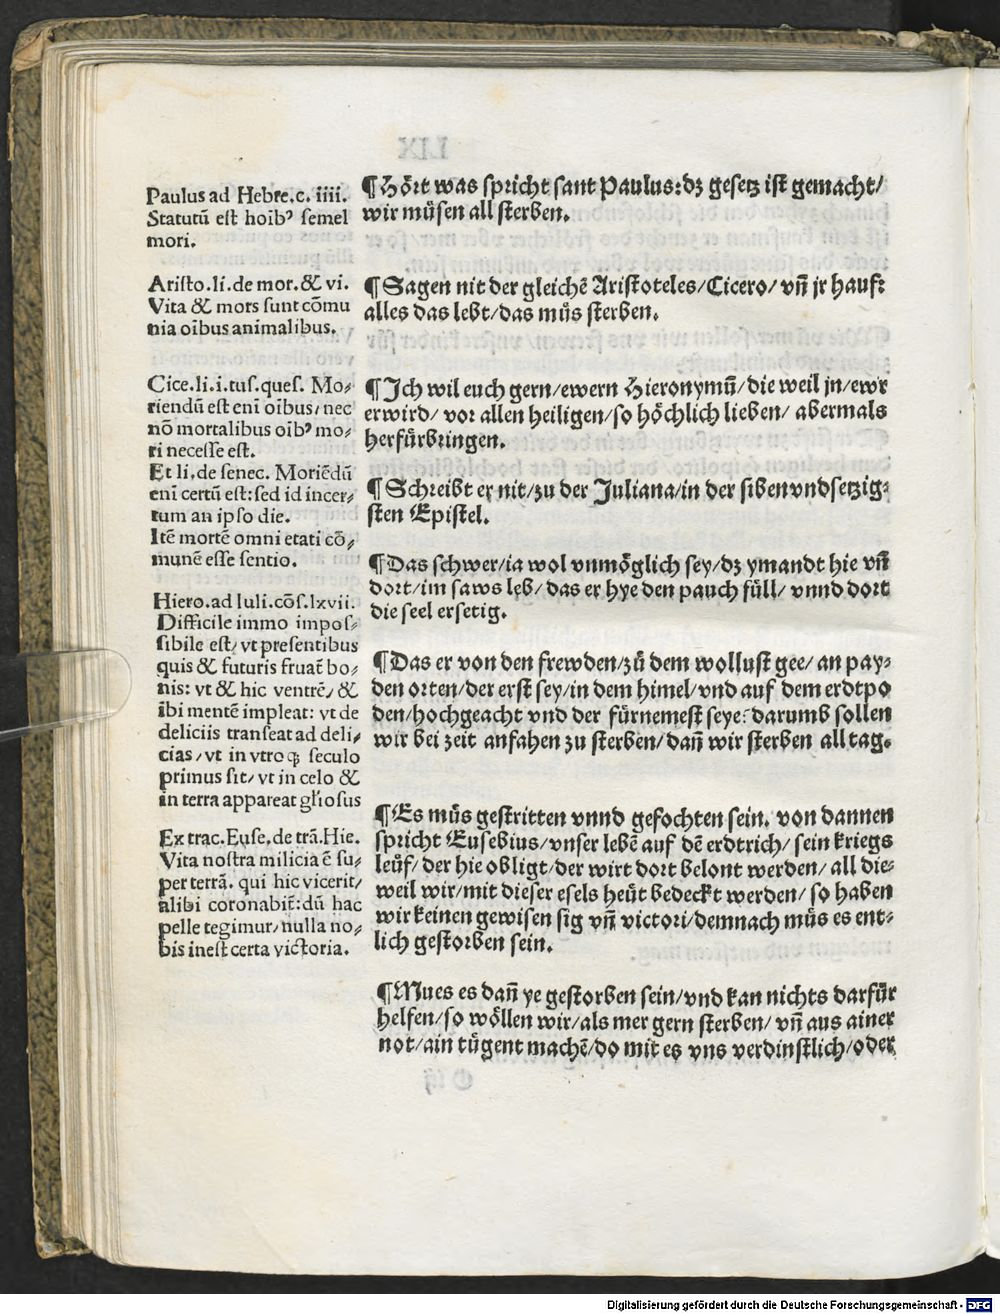 Paulus ad Hebre.c. iiii.
Statutū est hoibꝰ semel
mori.
Aristo.li.de mor.& vi.
Vita & mors sunt cōmu
nia oībus animalibus.
Cice.li.i.tus.ques. Mo⸗
riendū est enī oībus/ nec
nō mortalibus oībꝰ mo⸗
ri necesse est.
Et li.de senec. Moriēdū
enī certū est: sed id incer⸗
tum an ipso die.
Itē mortē omni etati cō⸗
munē esse sentio.
Hiero.ad Iuli.cōs.lxvii.
Difficile immo impos⸗
sibile est/ vt presentibus
quis & futuris fruat̄ bo⸗
nis: vt & hic ventrē/ &
ibi mentē impleat: vt de
deliciis transeat ad deli⸗
cias/ vt in vtroq̢ seculo
primus sit/ vt in celo &
in terra appareat gl̄iosus
Ex trac.Euse.de trā.Hie.
Vita nostra milicia ē su⸗
per terrā. qui hic vicerit/
alibi coronabit̄: dū hac
pelle tegimur/ nulla no⸗
bis inest certa victoria.
¶ Hört was spricht sant Paulus: dz gesetz ist gemacht/
wir müsen all sterben.
¶ Sagen nit der gleichē Aristoteles/Cicero/ vn̄ jr hauf:
alles das lebt/das müs sterben.
¶ Ich wil euch gern/ewern Hieronymū/die weil jn/ewr
erwird/ vor allen heiligen/so höchlich lieben/ abermals
herfürbringen.
¶ Schreibt er nit/zu der Juliana/in der sibenvndsetzig⸗
sten Epistel.
¶ Das schwer/ia wol vnmöglich sey/dz ymandt hie vn̄
dort/im saws leb/das er hye den pauch füll/ vnnd dort
die seel ersetig.
¶ Das er von den frewden/zů dem wollust gee/ an pay⸗
den orten/der erst sey/in dem himel/vnd auf dem erdtpo
den/hochgeacht vnd der fürnemest seye: darumb sollen
wir bei zeit anfahen zu sterben/dan̄ wir sterben all tag.
¶ Es müs gestritten vnnd gefochten sein. von dannen
spricht Eusebius/vnser lebē auf dē erdtrich/ sein kriegs
leüf/der hie obligt/der wirt dort belont werden/ all die⸗
weil wir/mit dieser esels heüt bedeckt werden/ so haben
wir keinen gewisen sig vn̄ victori/demnach müs es ent⸗
lich gestorben sein.
¶ Mues es dan̄ ye gestorben sein/vnd kan nichts darfür
helfen/so wöllen wir/als mer gern sterben/ vn̄ aus ainer
not/ain tügent machē/do mit es vns verdinstlich/oder
Digitalisierung gefördert durch die Deutsche Forschungsgemeinschaft - DFG